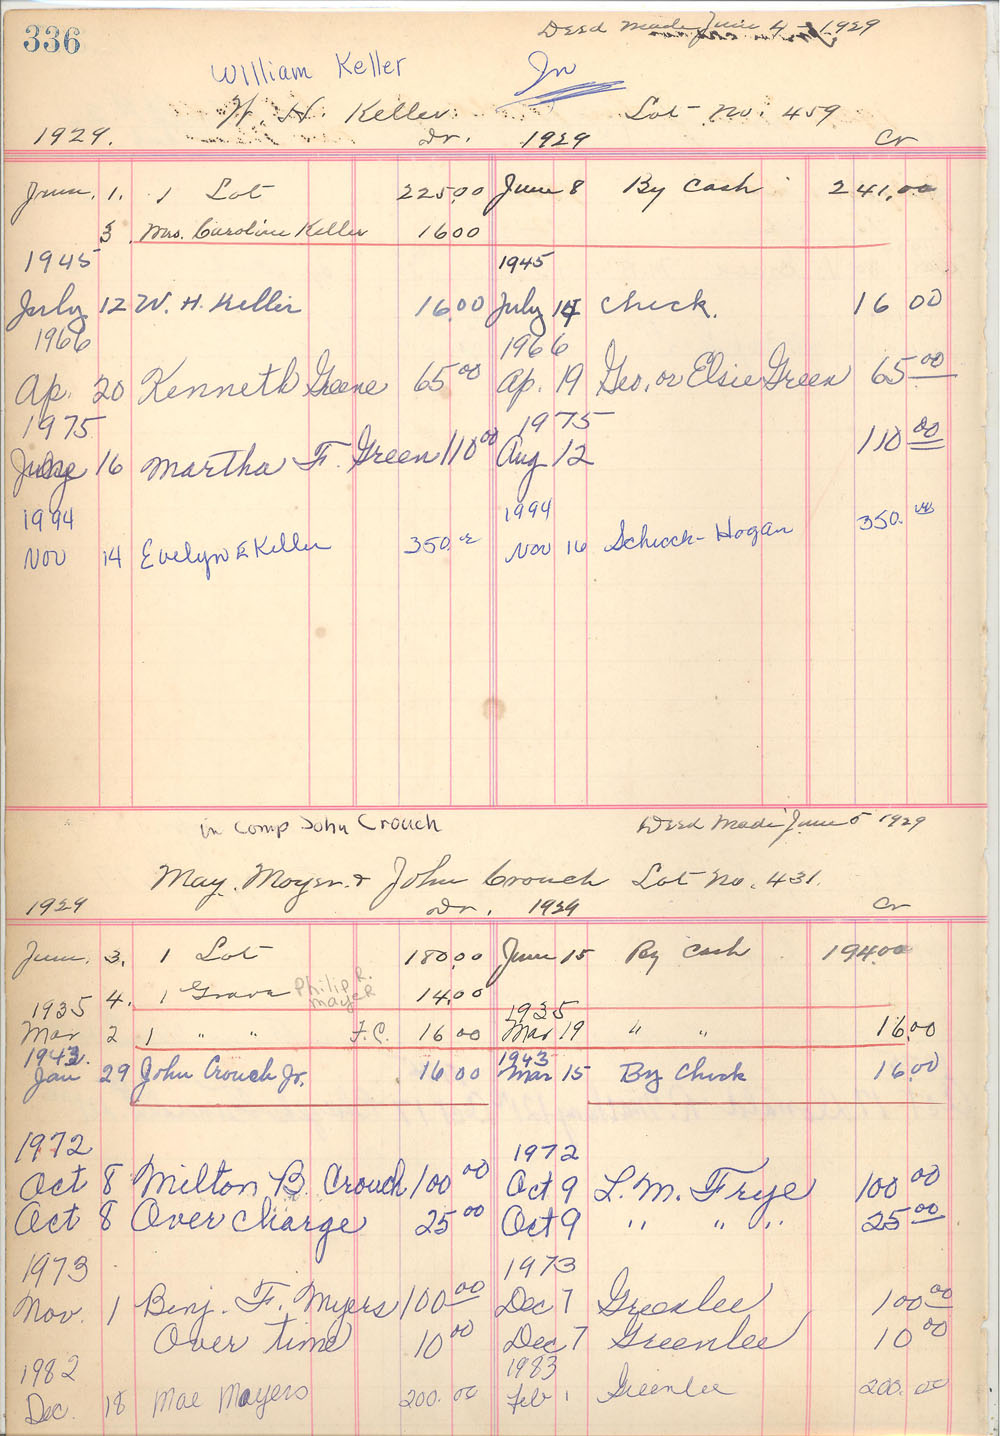 336
Deed Made June 4, 1929
William Keller
In
W. H. Keller. Lot No. 459
1929. Dr. 1929 Cr
June. 1. 1 Lot 225.00 June 8 By Cash 241.00
3. Mrs. Caroline Keller 16 00
1945 1945
July 12 W. H. Keller 16.00 July 14 Check. 16 00
1966 1966
Ap. 20 Kenneth Greene 65 00 Ap. 19 Geo. or Elsie Green 65 00
1975 1975
16 Martha F. Green 110 00 Aug 12 110 00
1994 1994
Nov 14 Evelyn E Keller 350. Nov 16 Schrock-Hogan 350.
in comp John Crouch Deed Made June 5 1929
May. Moyer. & John Crouch Lot No. 431.
1929 Dr. 1929 Cr
June. 3. 1 Lot 180.00 June 15 By Cash 194.00
4. 1 Grave Philip R. Mayer 14.00
1935 1935
Mar 2 1 " " F.C. 16 00 Mar 19 " " 16.00
1943. 1943
Jan 29 John Crouch Jr. 16 00 Mar 15 By Check 16.00
1972 1972
Oct 8 Milton B. Crouch 100 00 Oct 9 L. M. Frye 100 00
Oct 8 Over charge 25 00 Oct 9 " " " 25 00
1973 1973
Nov. 1 Benj. F. Myers 100 00 Dec 7 Greenlee 100 00
Over time 10 00 Dec 7 Greenlee 10 00
1982 1983
Dec. 18 Mae Mayers 200. 00 Feb 1 Greenlee 200. 00